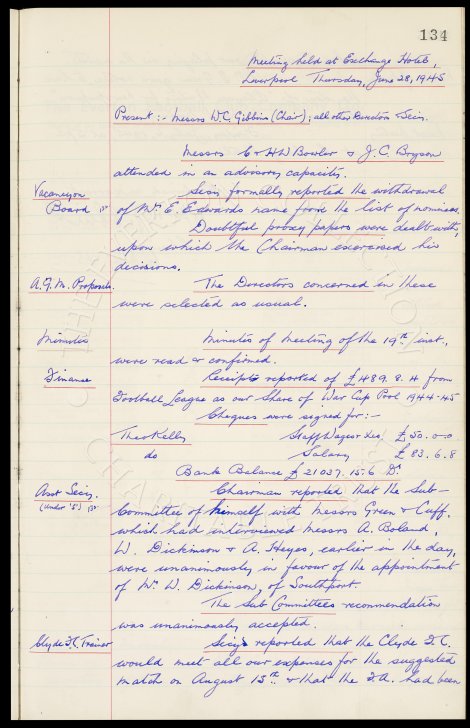 134
Meeting held at Exchange Hotel,
Liverpool Thursday, June 28, 1945
Present :- Messrs W.C. Gibbins (Chair); all other Directors & Secy.
Messrs C & H W Bowler & J.C. Bryson
attended in an advisory capacity.
Vacancy on Secy formally reported the withdrawal
Board of Mr E. Edwards name from the list of nominees.
Doubtful proxy papers were dealt with,
upon which the Chairman exercised his
decisions.
A.G.M. Proposals. The Directors concerned in these
were selected as usual.
Minutes Minutes of Meeting of the 19th inst.
were read & confirmed.
Finance Receipts reported of £489. 8. 4 from
Football League as our share of War Cup Pool 1944-45
Cheques were signed for:-
Theo Kelly Staff Wages £50. 0. 0
do Salary £83. 6. 8
Bank Balance £21037. 15. 6 Dr
Asst Secy. Chairman reported that the Sub-
Committee of himself with Messrs Green & Cuff,
which had interviewed Messrs A. Boland,
W. Dickinson & A. Heyes, earlier in the day,
were unanimously in favour of the appointment
of Mr W. Dickinson, of Southport.
The Sub Committees recommendation
was unanimously accepted.
Clyde F.C. Trainer Secy reported that the Clyde F.C.
would meet all our expenses for the suggested
match on August 15th & that the F.A. had been